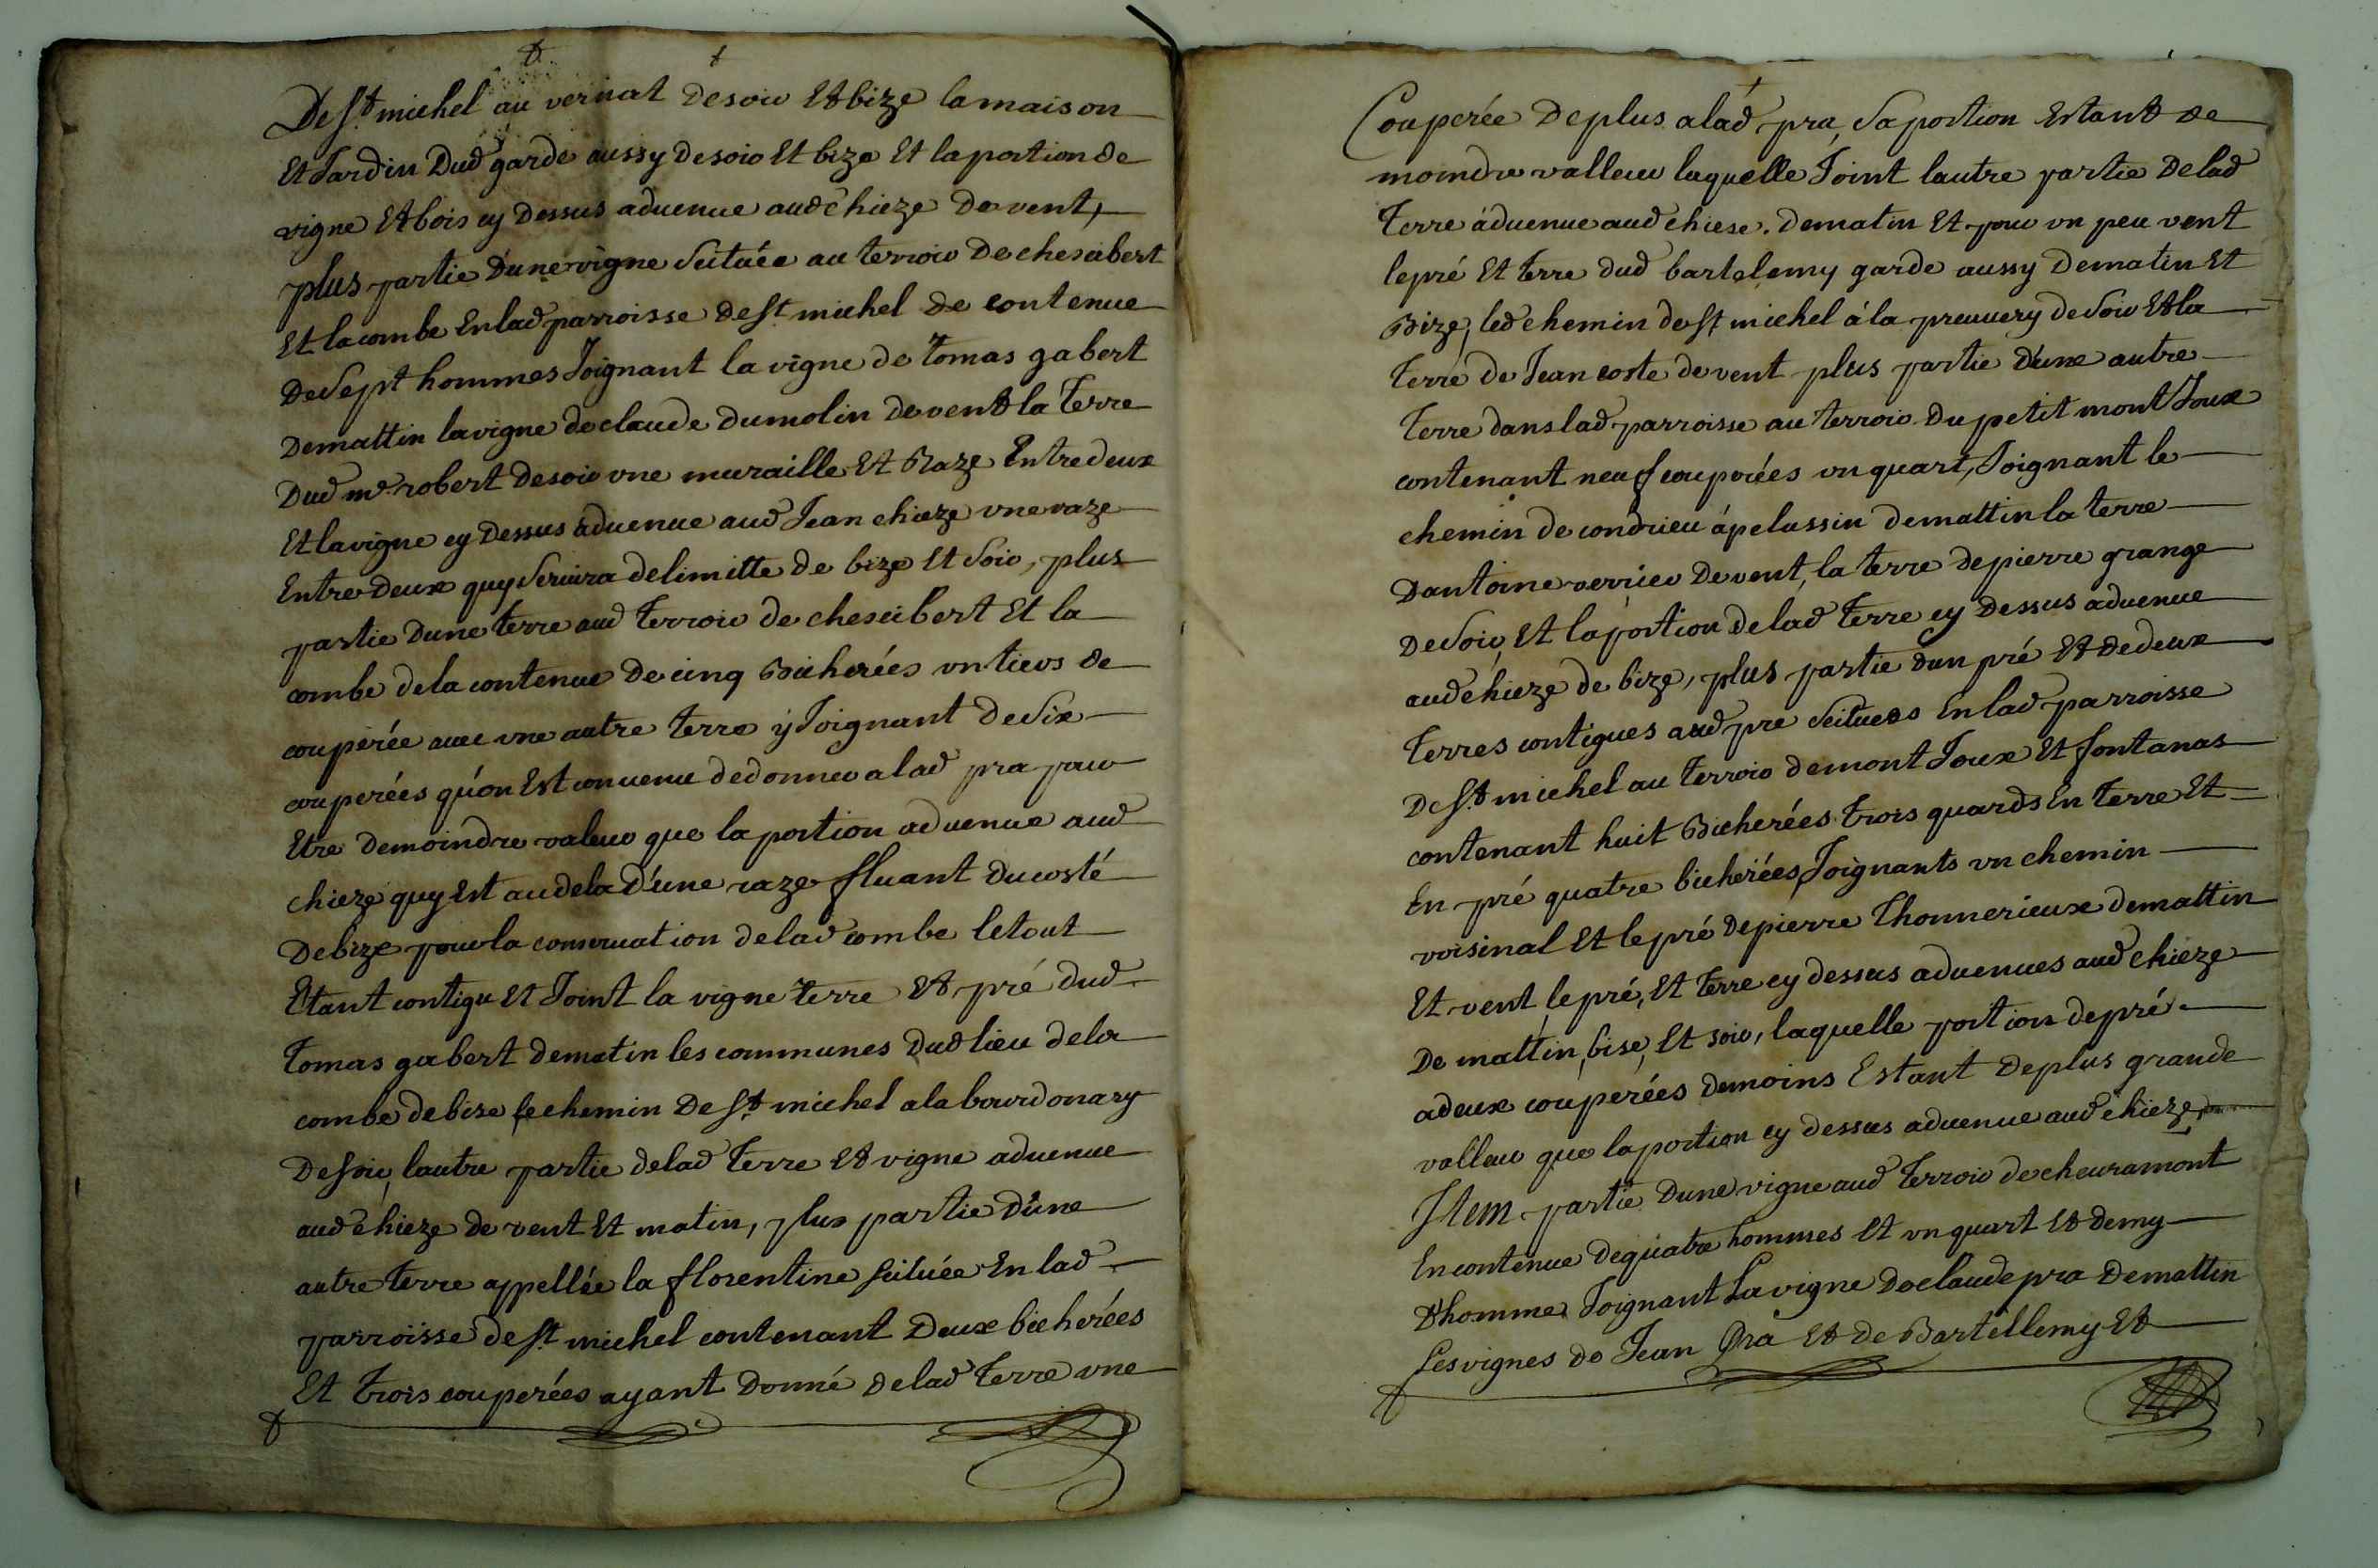 De st michel au vernat de soir Et bize la maison
Et Jardin Dud garde aussy de soir Et bize Et la portion de
vigne Et bois cy Dessus advenue aud chieze de vent,
plus partie d'une vigne scituée au terroir De chescibert
Et la combe En lad parroisse de st michel de contenue
De sept hommes Joignant la vigne de tomas gabert
De mattin la vigne de claude dumolin de vent la terre
Dud mr robert de soir vne muraille Et Raze Entre deux
Et la vigne cy Dessus advenue aud Jean chieze vne raze
Entre Deux quy servira de limitte de bize Et soir, plus
partie D'une terre aud terroir de chescibert Et la
combe de la contenue De cinq Bicherées vn tiers de
couperée avec vne autre terre y Joignant de six
couperées qu'on Est convenu de donner a lad pra pour
Etre De moindre valeur que la portion advenue aud
chieze quy Est au dela d'une raze fluant du costé
De bize pour la conservation de lad combe le tout
Etant contigu Et Joint la vigne terre Et pré dud
tomas gabert de matin les communes Dud lieu de la
combe de bize le chemin De st michel a la bourdonary
De soir, lautre partie de lad terre Et vigne advenue
aud chieze de vent Et matin, plus partie d'une
autre terre appellée la florentine scituée En lad
parroisse de st michel contenant Deux bicherées
Et trois couperées ayant Donné de lad terre vne
Couperée De plus a lad pra sa portion Estant de
moindre valleur laquelle Joint lautre partie De lad
terre advenue aud chiese. de matin Et pour vn peu vent
le pré Et terre dud bartelemy garde aussy De matin Et
Bize, led chemin de st michel à la preuvery de soir Et la
terre de Jean coste de vent plus partie D'une autre
terre dans lad parroisse au terroir Du petit mont Joux
contenant neuf couperées vn quart, Joignant le
chemin de condrieu à pelussin de mattin la terre
D'antoine verrier De vent, la terre de pierre grange
De soir, Et la portion de lad terre cy Dessus advenue
aud chieze de bize, plus partie d'un pré Et de deux
terres contigues aud pre scituées En lad parroisse
De st michel au terroir de mont Joux Et fontanas
contenant huit Bicherées trois quards En terre Et
En pré quatre bicherées, Joignants vn chemin
voisinal Et le pré De pierre Thonnerieux de mattin
Et vent le pré, Et terre cy dessus advenues aud chieze
De mattin, bise, Et soir, laquelle portion de pré
a deux couperées de moins Estant De plus grande
valleur que la portion cy dessus advenue aud chieze,
Item partie D'une vigne aud terroir de cheuramont
En contenue de quatre hommes Et vn quart Et demy
d'homme Joignant La vigne De claude pra De mattin
Les vignes de Jean Pra Et de Bartellemy Et